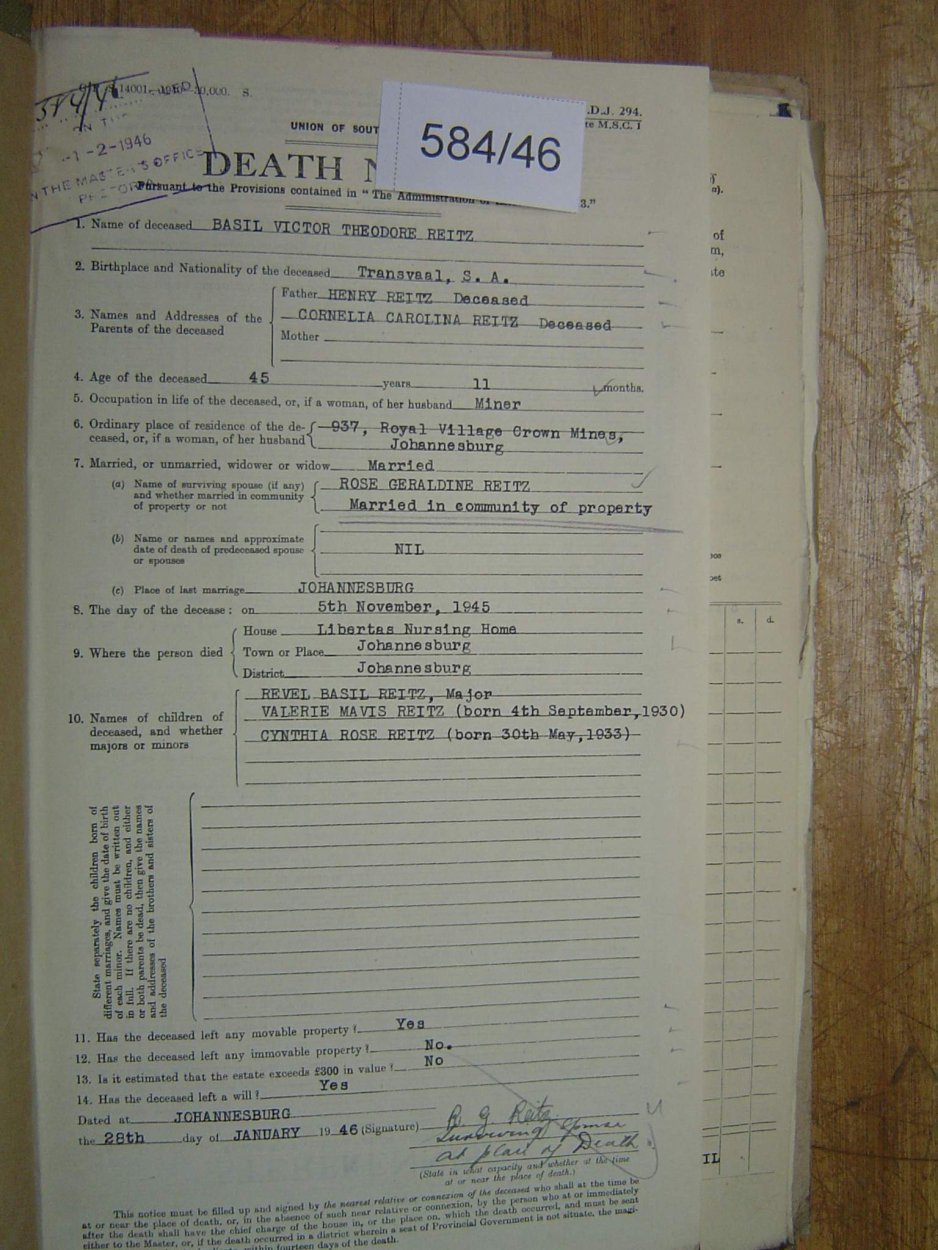 584/46
14001
.D.J. 294.
S.
M.S.C. 1
584/46
-1-2-1946
IN THE MASTER'S OFFICE
UNION OF SOUT
DEATH N
Pursuant to the Provisions contained in "The Administration of 3."
1. Name of deceased BASIL VICTOR THEODORE REITZ
2. Birthplace and Nationality of the deceased Transvaal, S. A.
3. Names and Addresses of the Parents of the deceased
Father HENRY REITZ Deceased
CORNELIA CAROLINA REITZ Deceased
Mother
4. Age of the deceased 45 years 11 months.
5. Occupation in life of the deceased, or, if a woman, of her husband Miner
6. Ordinary place of residence of the de-
ceased, or, if a woman, of her husband
937, Royal Village Crown Mines,
Johannesburg
7. Married, or unmarried, widower or widow Married
(a) Name of surviving spouse (if any)
and whether married in community
of property or not
ROSE GERALDINE REITZ
Married in community of property
(b) Name or names and approximate
date of death of predeceased spouse
or spouses
NIL
(c) Place of last marriage JOHANNESBURG
8. The day of the decease: on 5th November, 1945
9. Where the person died
House Libertas Nursing Home
Town or Place Johannesburg
District Johannesburg
10. Names of children of
deceased, and whether
majors or minors
REVEL BASIL REITZ, Major
VALERIE MAVIS REITZ (born 4th September, 1930)
CYNTHIA ROSE REITZ (born 30th May, 1933)
State separately the children born of
different marriages, and give the date of birth
of each minor. Names must be written out
in full. If there are no children, and either
or both parents be dead, then give the names
and addresses of the brothers and sisters of
the deceased
11. Has the deceased left any movable property? Yes
12. Has the deceased left any immovable property? No.
13. Is it estimated that the estate exceeds £300 in value? No
14. Has the deceased left a will? Yes
Dated at JOHANNESBURG
the 28th day of JANUARY 1946 (Signature) R. G. Reitz
Surviving Spouse
at place of Death.
(State in what capacity and whether at the time
or near the place of death.)
This notice must be filled up and signed by the nearest relative or connexion of the deceased who shall at the time be
at or near the place of death, or, in the absence of such near relative or connexion, by the person who at or immediately
after the death shall have the chief charge of the house in, or the place on, which the death occurred, and must be sent
either to the Master, or, if the death occurred in a district wherein a seat of Provincial Government is not situate, the magi-
within fourteen days of the death.
of
m,
te
s. d.
IL